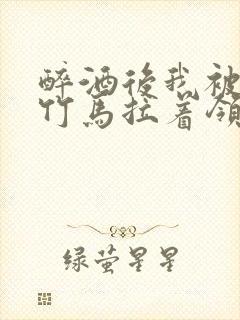 醉酒後我被
竹馬拉着领
绿萤星星